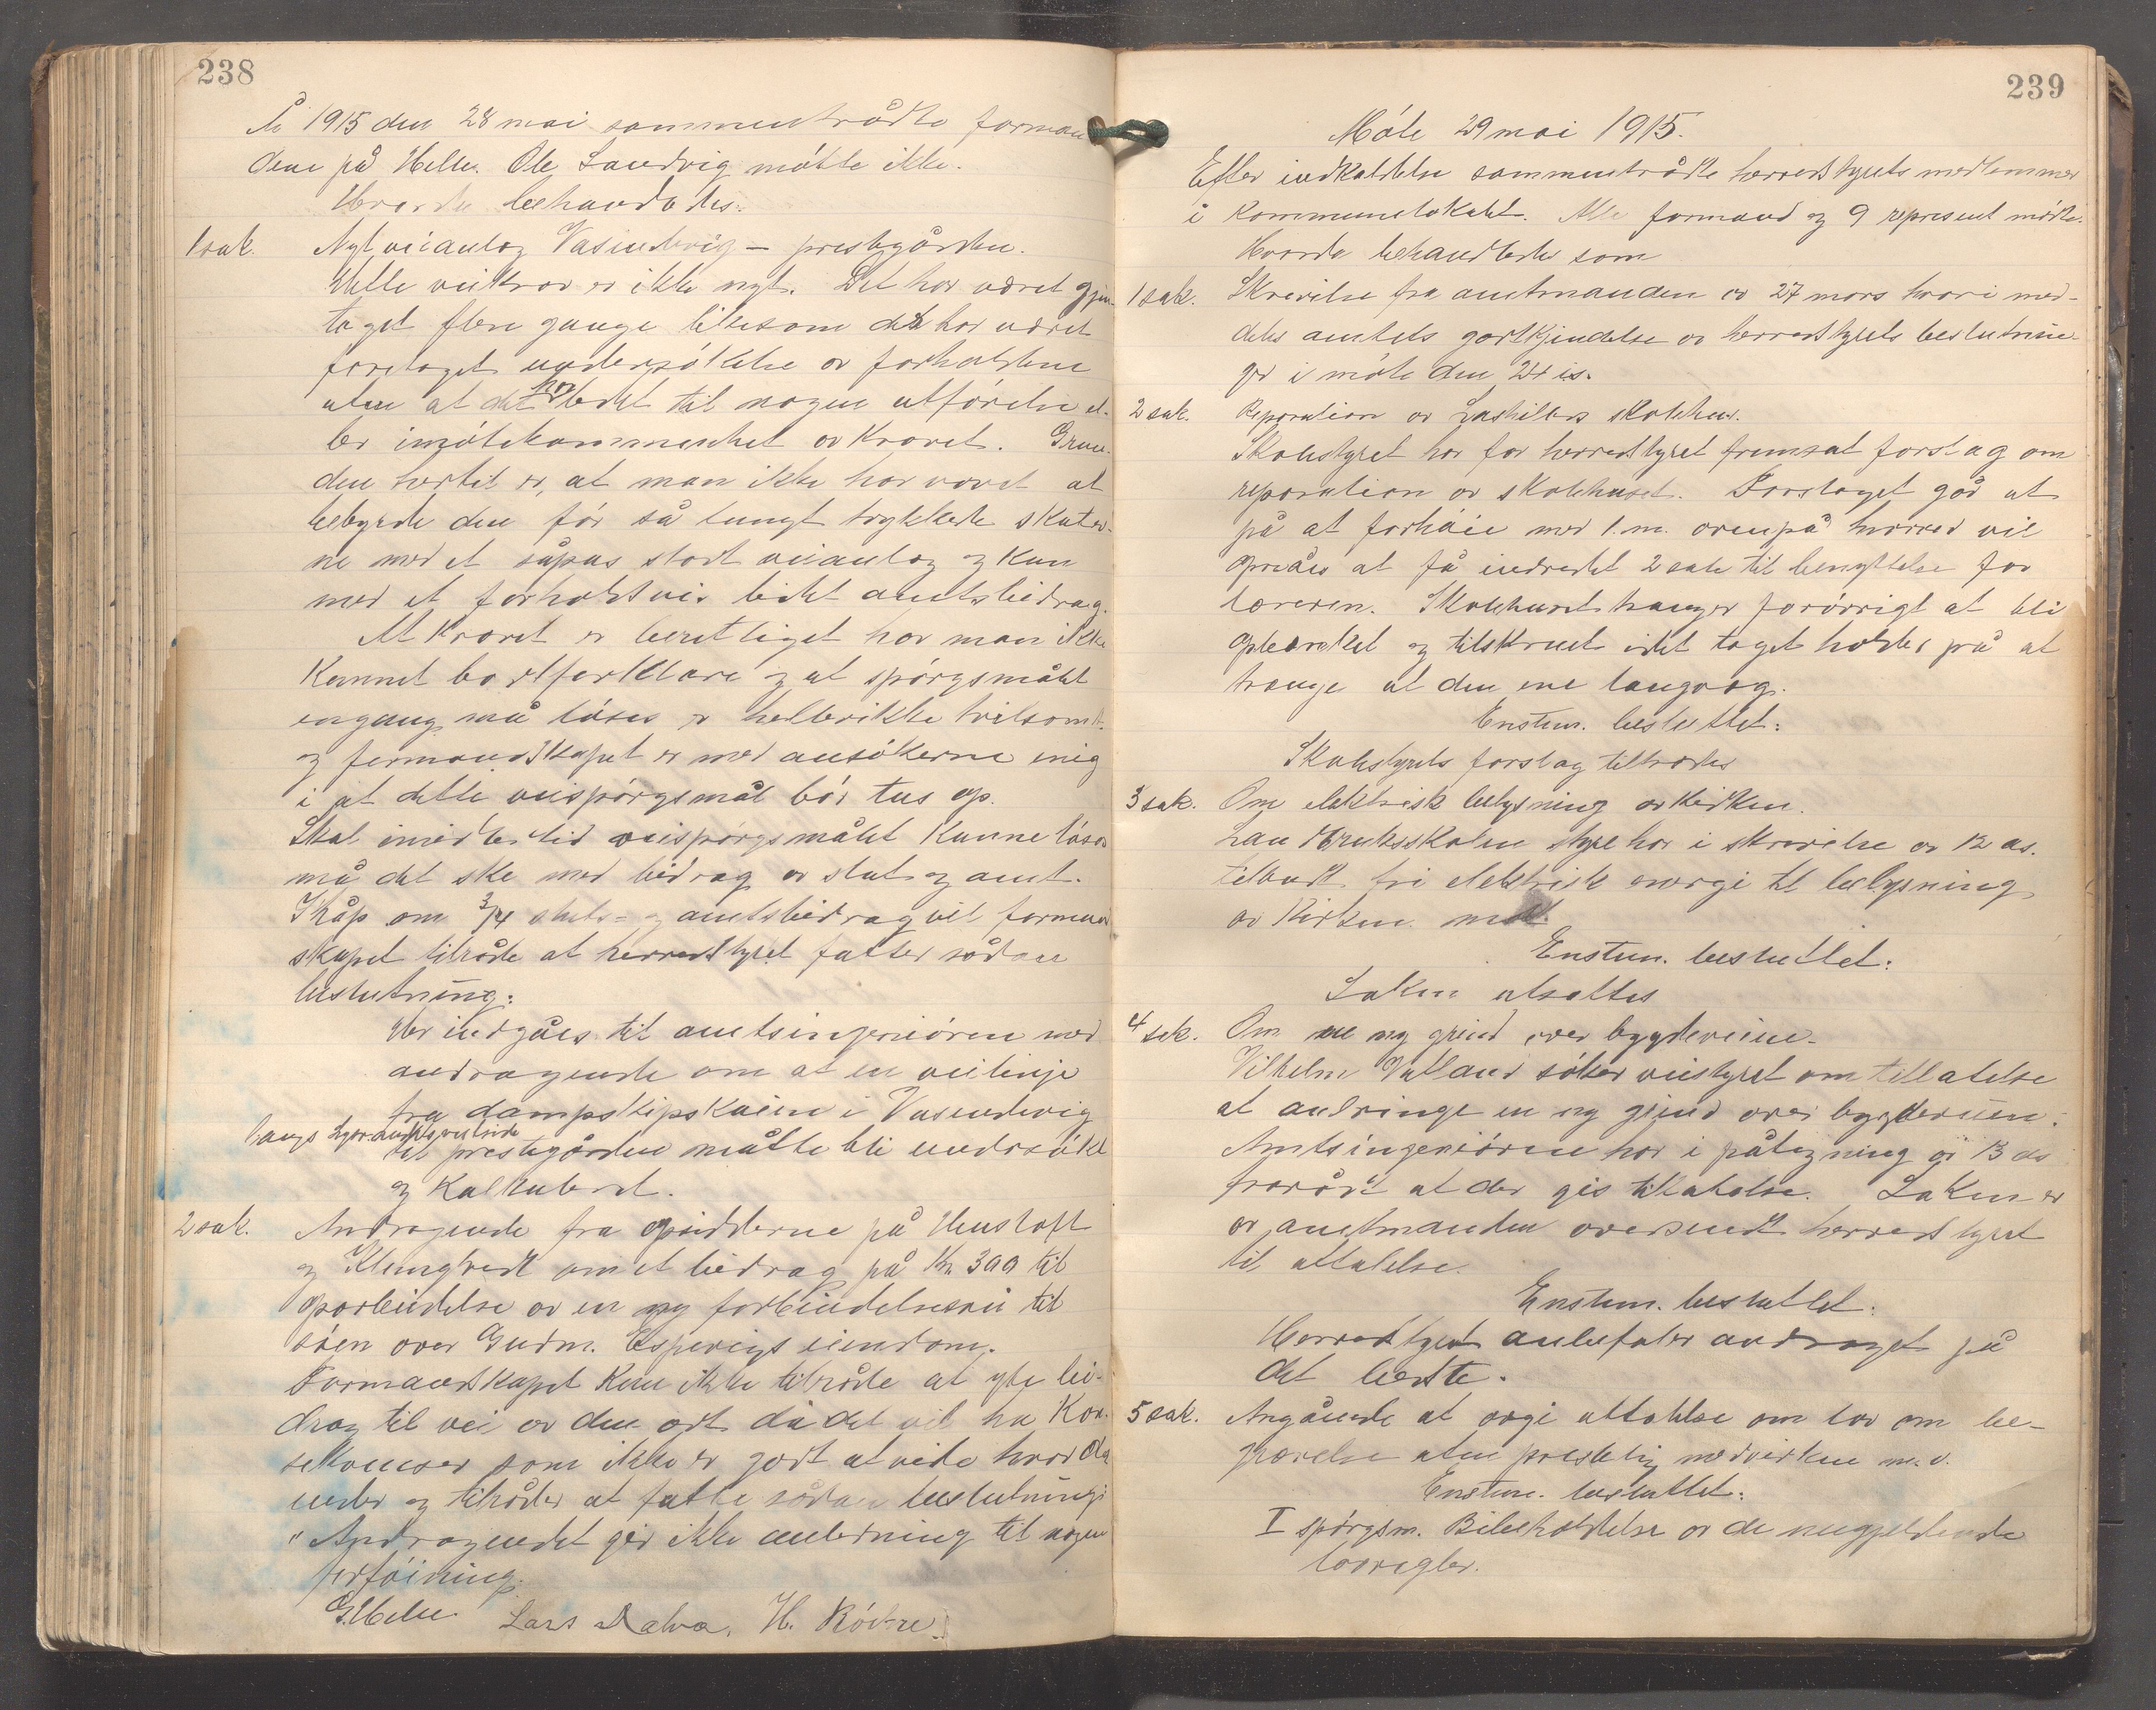 238
År 1915 den 28 mai sammentrådte forman
dene på Helle. Ole Sandvig møtte ikke.
Hvorda behandledes:
1 sak. Nyt veianlæg Vasindvig - prestegården.
Dette veikrav er ikke nyt. Det har været gjen-
taget flere gange likesom det har været
foretaget undersøkelse av forholdene
uten at det har ledet til nogen utførelse el-
ler imøtekommenhet av kravet. Grun-
den hertil er, at man ikke har vovet at
bebyrde den før så tungt trykkede skatter-
ne med et såpas stort veianlæg og kun
med et forholdsvis litet amtsbidrag.
At kravet er berettiget har man ikke
kunnet bortforklare og at spørgsmålet
engang må løses er heller ikke tvilsomt.
og formandskapet er med ansøkerne enig
i at dette veispørgsmål bør tas op.
Skal imidlertid veispørgsmålet kunne løses
må det ske med bidrag av stat og amt.
I håp om 3/4 stats- og amtsbidrag vil formand
skapet tilråde at herredstyret fatter sådan
beslutning:
Der indgåes til amtsingeniøren med
andragende om at en veilinje
fra dampskipskaien i Vasendvig
langs
til prestegården måtte bli undersøkt
og kalkulert.
2 sak. Andragende fra opsidderne på Hustoft
og Klungtvedt om et bidrag på Kr 300 til
oparbeidelse av en ny forbindelsesvei til
søen over Gudm. Espevigs eiendom.
Formandskapet kan ikke tilråde at yte bi-
drag til vei av den art da det vil ha kon-
sekvenser som ikke er godt at vide hvor de
ender og tilråder at fatte sådan beslutning:
"Andragendet gir ikke anledning til nogen
forføining.
G. Helle. Lars Dalva. H. Røvre.
239
Møte 29 mai 1915.
Efter indkaldelse sammentrådte herredstyrets medlemmer
i kommunelokalet. Alle formænd og 9 represent møtte.
Hvorda behandledes som
1 sak. Skrivelse fra amtmanden av 27 mars hvori med-
deles amtets godkjendelse av herredstyrets beslutnin-
ger i møte den 24 ds.
2 sak. Reparation av skolehus.
Skolestyret har for herredstyret fremsat forslag om
reparation av skolehuset. Forslaget går ut
på at forhøie med 1. m. ovenpå hvorved vil
opnåes at få indredet 2 sale til benyttelse for
læreren. Skolehuset trænger forøvrigt at bli
opbrækket og tilskruet idet taget holdes på at
trænge ut den ene langvæg.
Enstem. besluttet:
Skolestyrets forslag tiltrædes
3 sak. Om elektrisk belysning av kirken.
Landbruksskolens styre har i skrivelse av 12 ds.
tilbudt fri elektrisk energi til belysning
av Kirken
Enstem. besluttet:
Saken utsættes
4 sak. Om en ny grind over bygdeveien.
Vilhelm Vatland søker veistyret om tillatelse
at anbringe en ny grind over bygdeveien.
Amtsingeniøren har i påtegning av 13 ds
frarådt at der gis tillatelse. Saken er
av amtmanden oversendt herredstyret
til uttalelse.
Enstem. besluttet:
Herredstyret anbefaler andraget på
det beste.
5 sak. Angående at avgi uttalelse om lov om be-
gravelse uten prestelig medvirken m. v.
Enstem. besluttet:
I spørgsm. Bibeholdelse av de nugjeldende
lovregler.